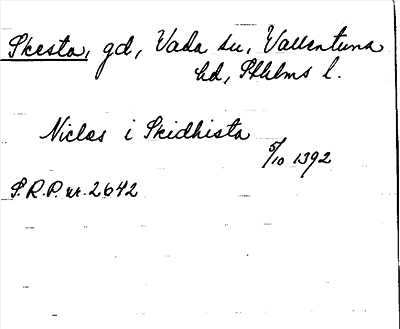 Skesta, gd, Vada sn, Vallentuna
hd, Sthlms l.
Niclas i Skidhista
5/10 1392
S.R.P. nr. 2642